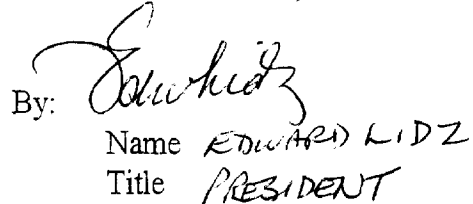 By: Edw Lidz
Name EDWARD LIDZ
Title PRESIDENT